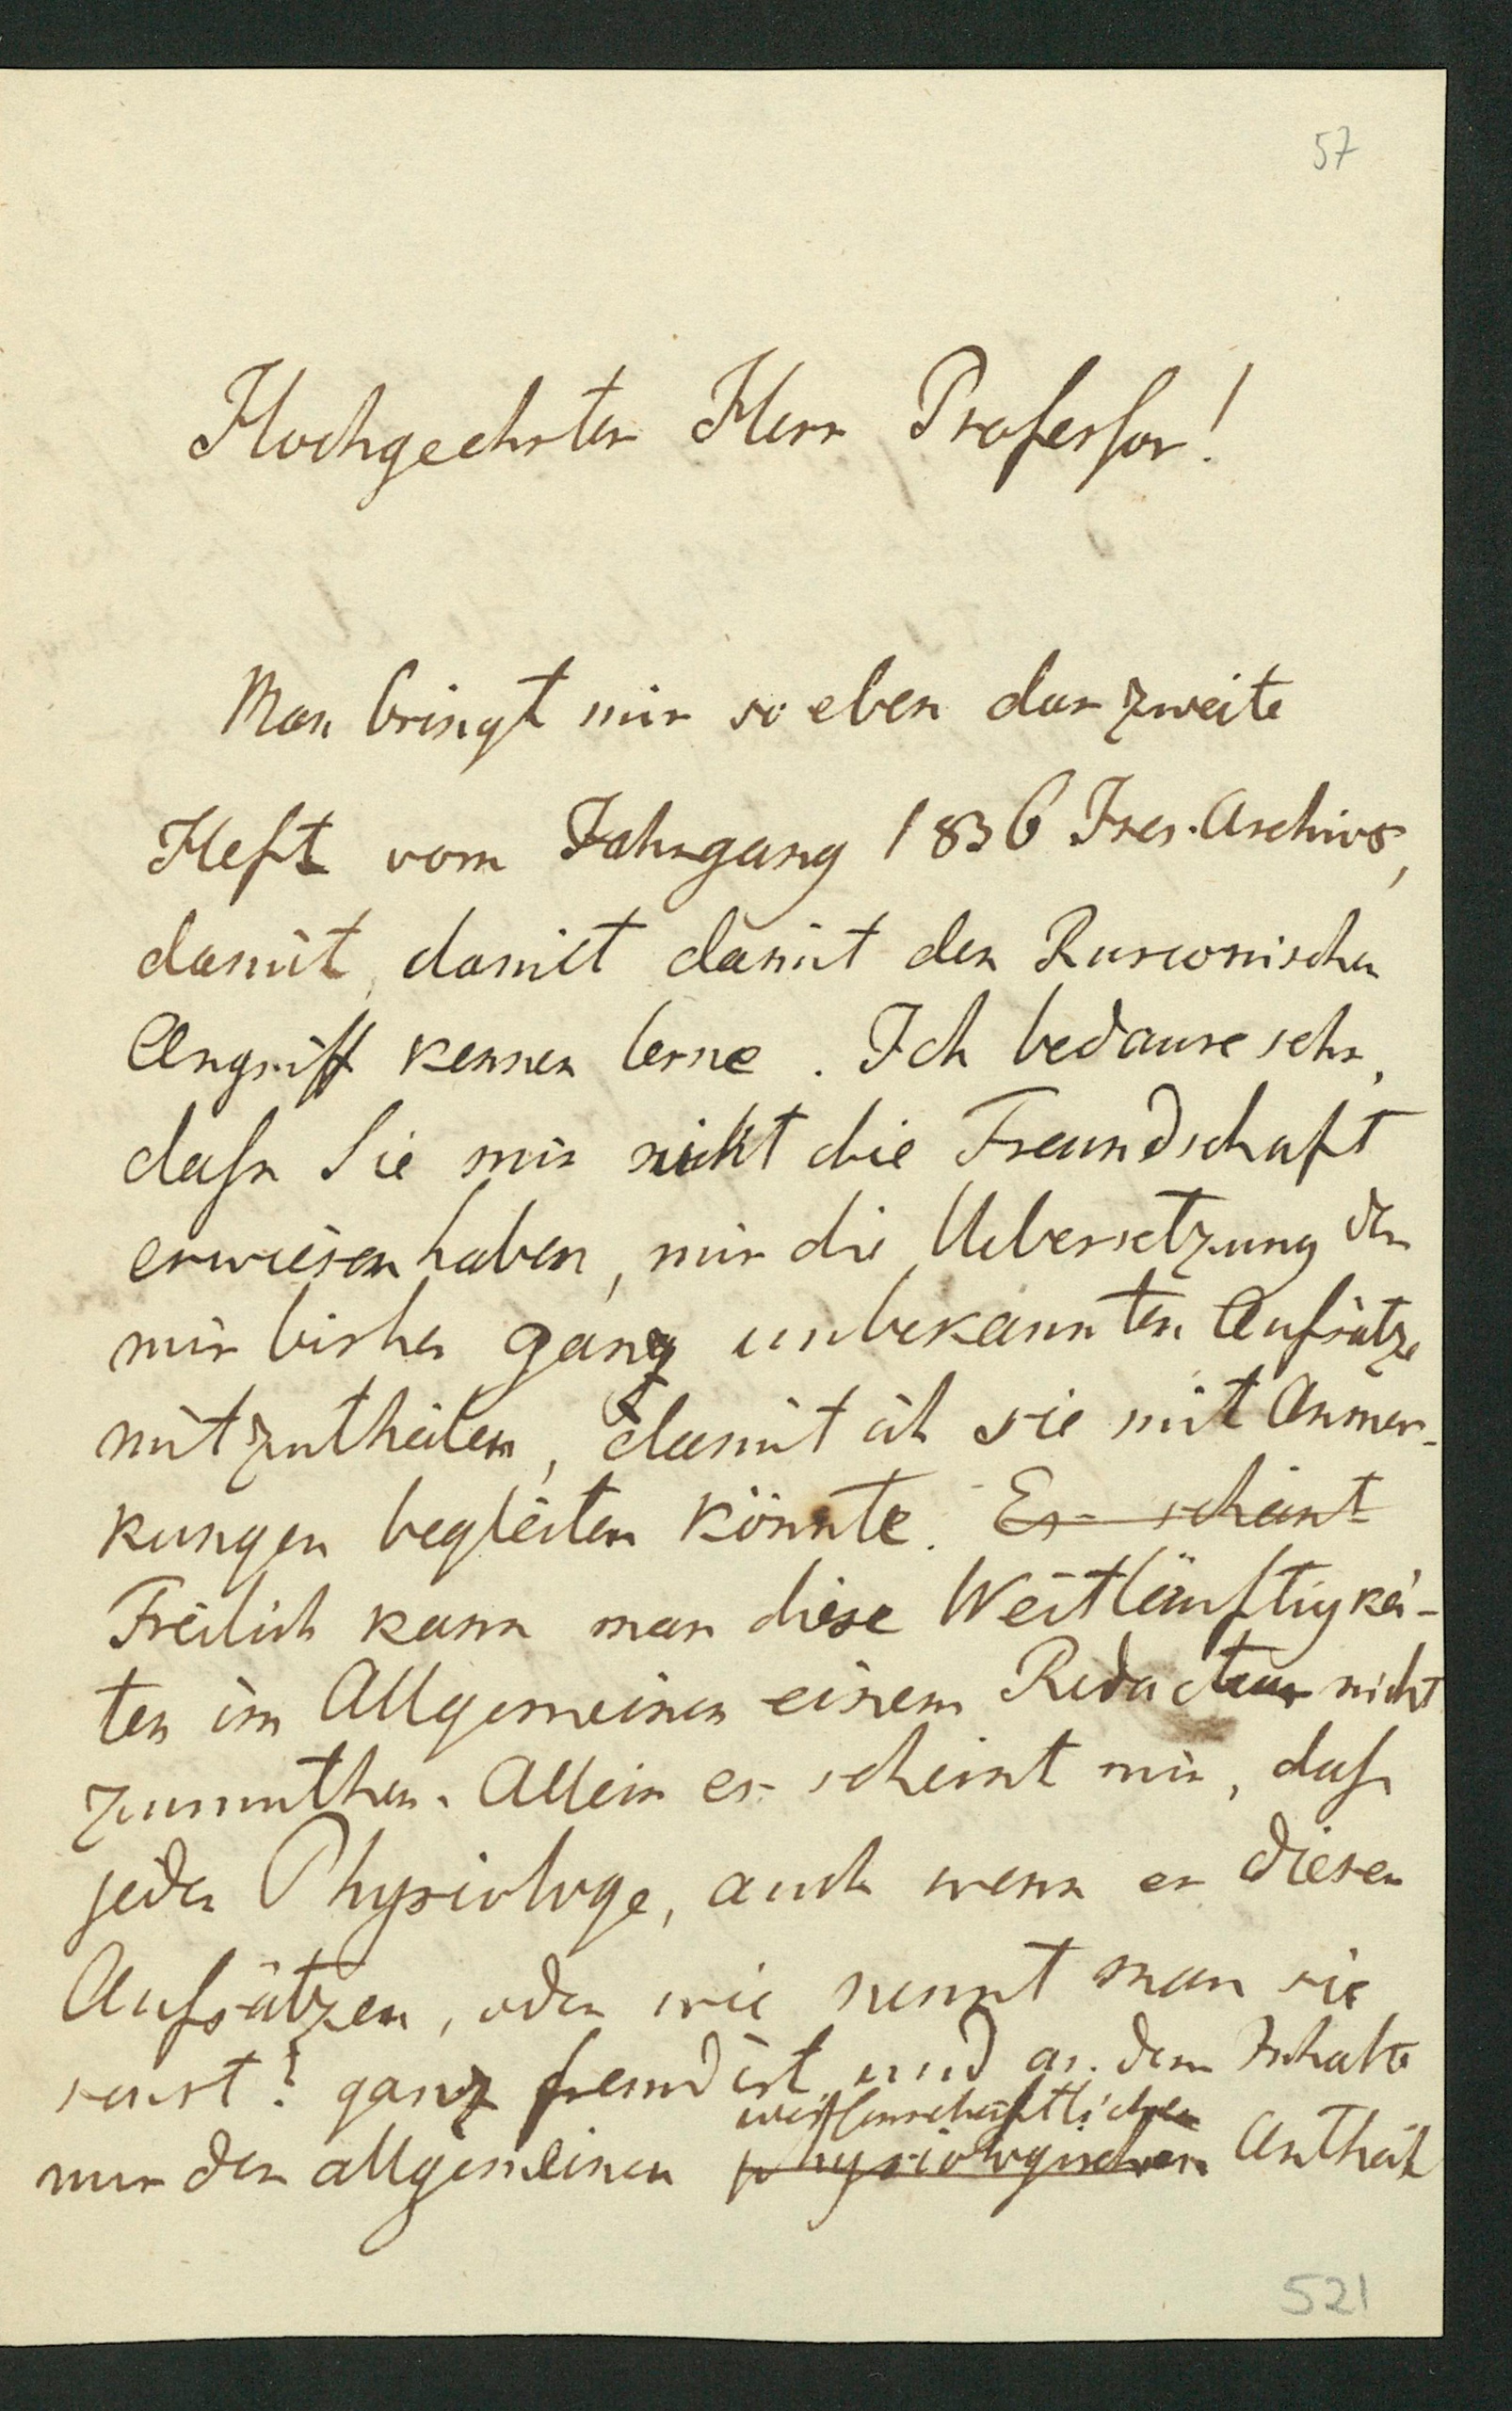 57
Hochgeehrter Herr Professor!
Man bringt mir so eben das zweite
Heft vom Jahrgang 1836 Ihres Archivs,
damit, damit damit den Rusconischen
Angriff kennen lerne. Ich bedaure sehr,
dass Sie mir nicht die Freundschaft
erwiesen haben, mir die Uebersetzung der
mir bisher ganz unbekannten Aufsätze
mitzutheilen, damit ich sie mit Anmer-
kungen begleiten könnte. Es scheint
Freilich kann man diese Weitläuftigkei-
ten im Allgemeinen einem Redacteur nicht
zumuthen. Allein es scheint mir, dass
jeder Physiologe, auch wenn er diesen
Aufsätzen, oder wie nennt man sie
sonst? ganz fremd ist, und an dem Inhalte
wissenschaftlichen
nur den allgemeinen physiologischen Antheil
521